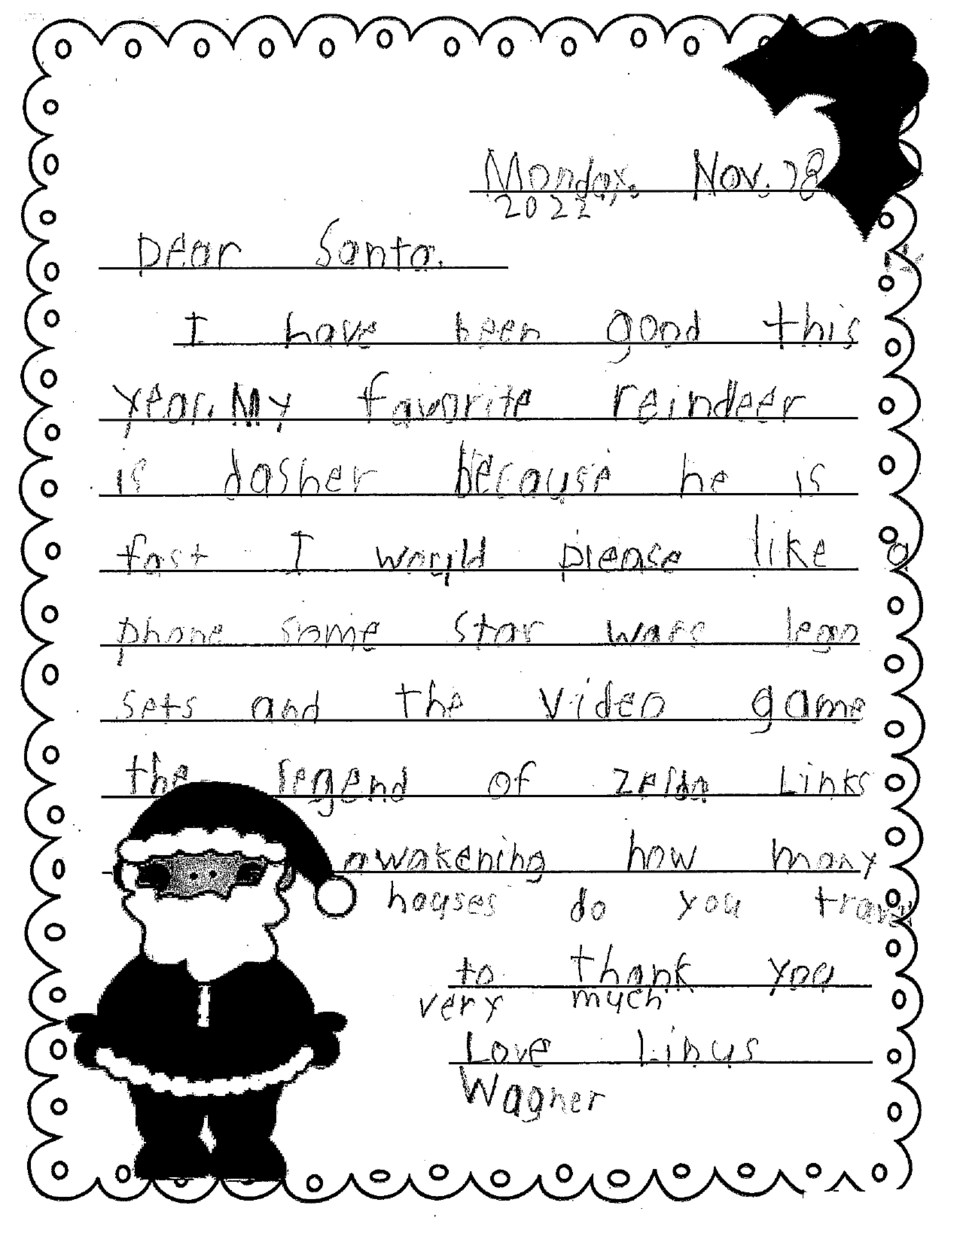 Monday, Nov. 28
2022
Dear Santa,
I have been good this
year. My favorite reindeer
is dasher because he is
fast I would please like a
phone some star wars lego
sets and the video game
the legend of zelda Links
awakening how many
houses do you travel
to thank you
very much
Love Linus
Wagner